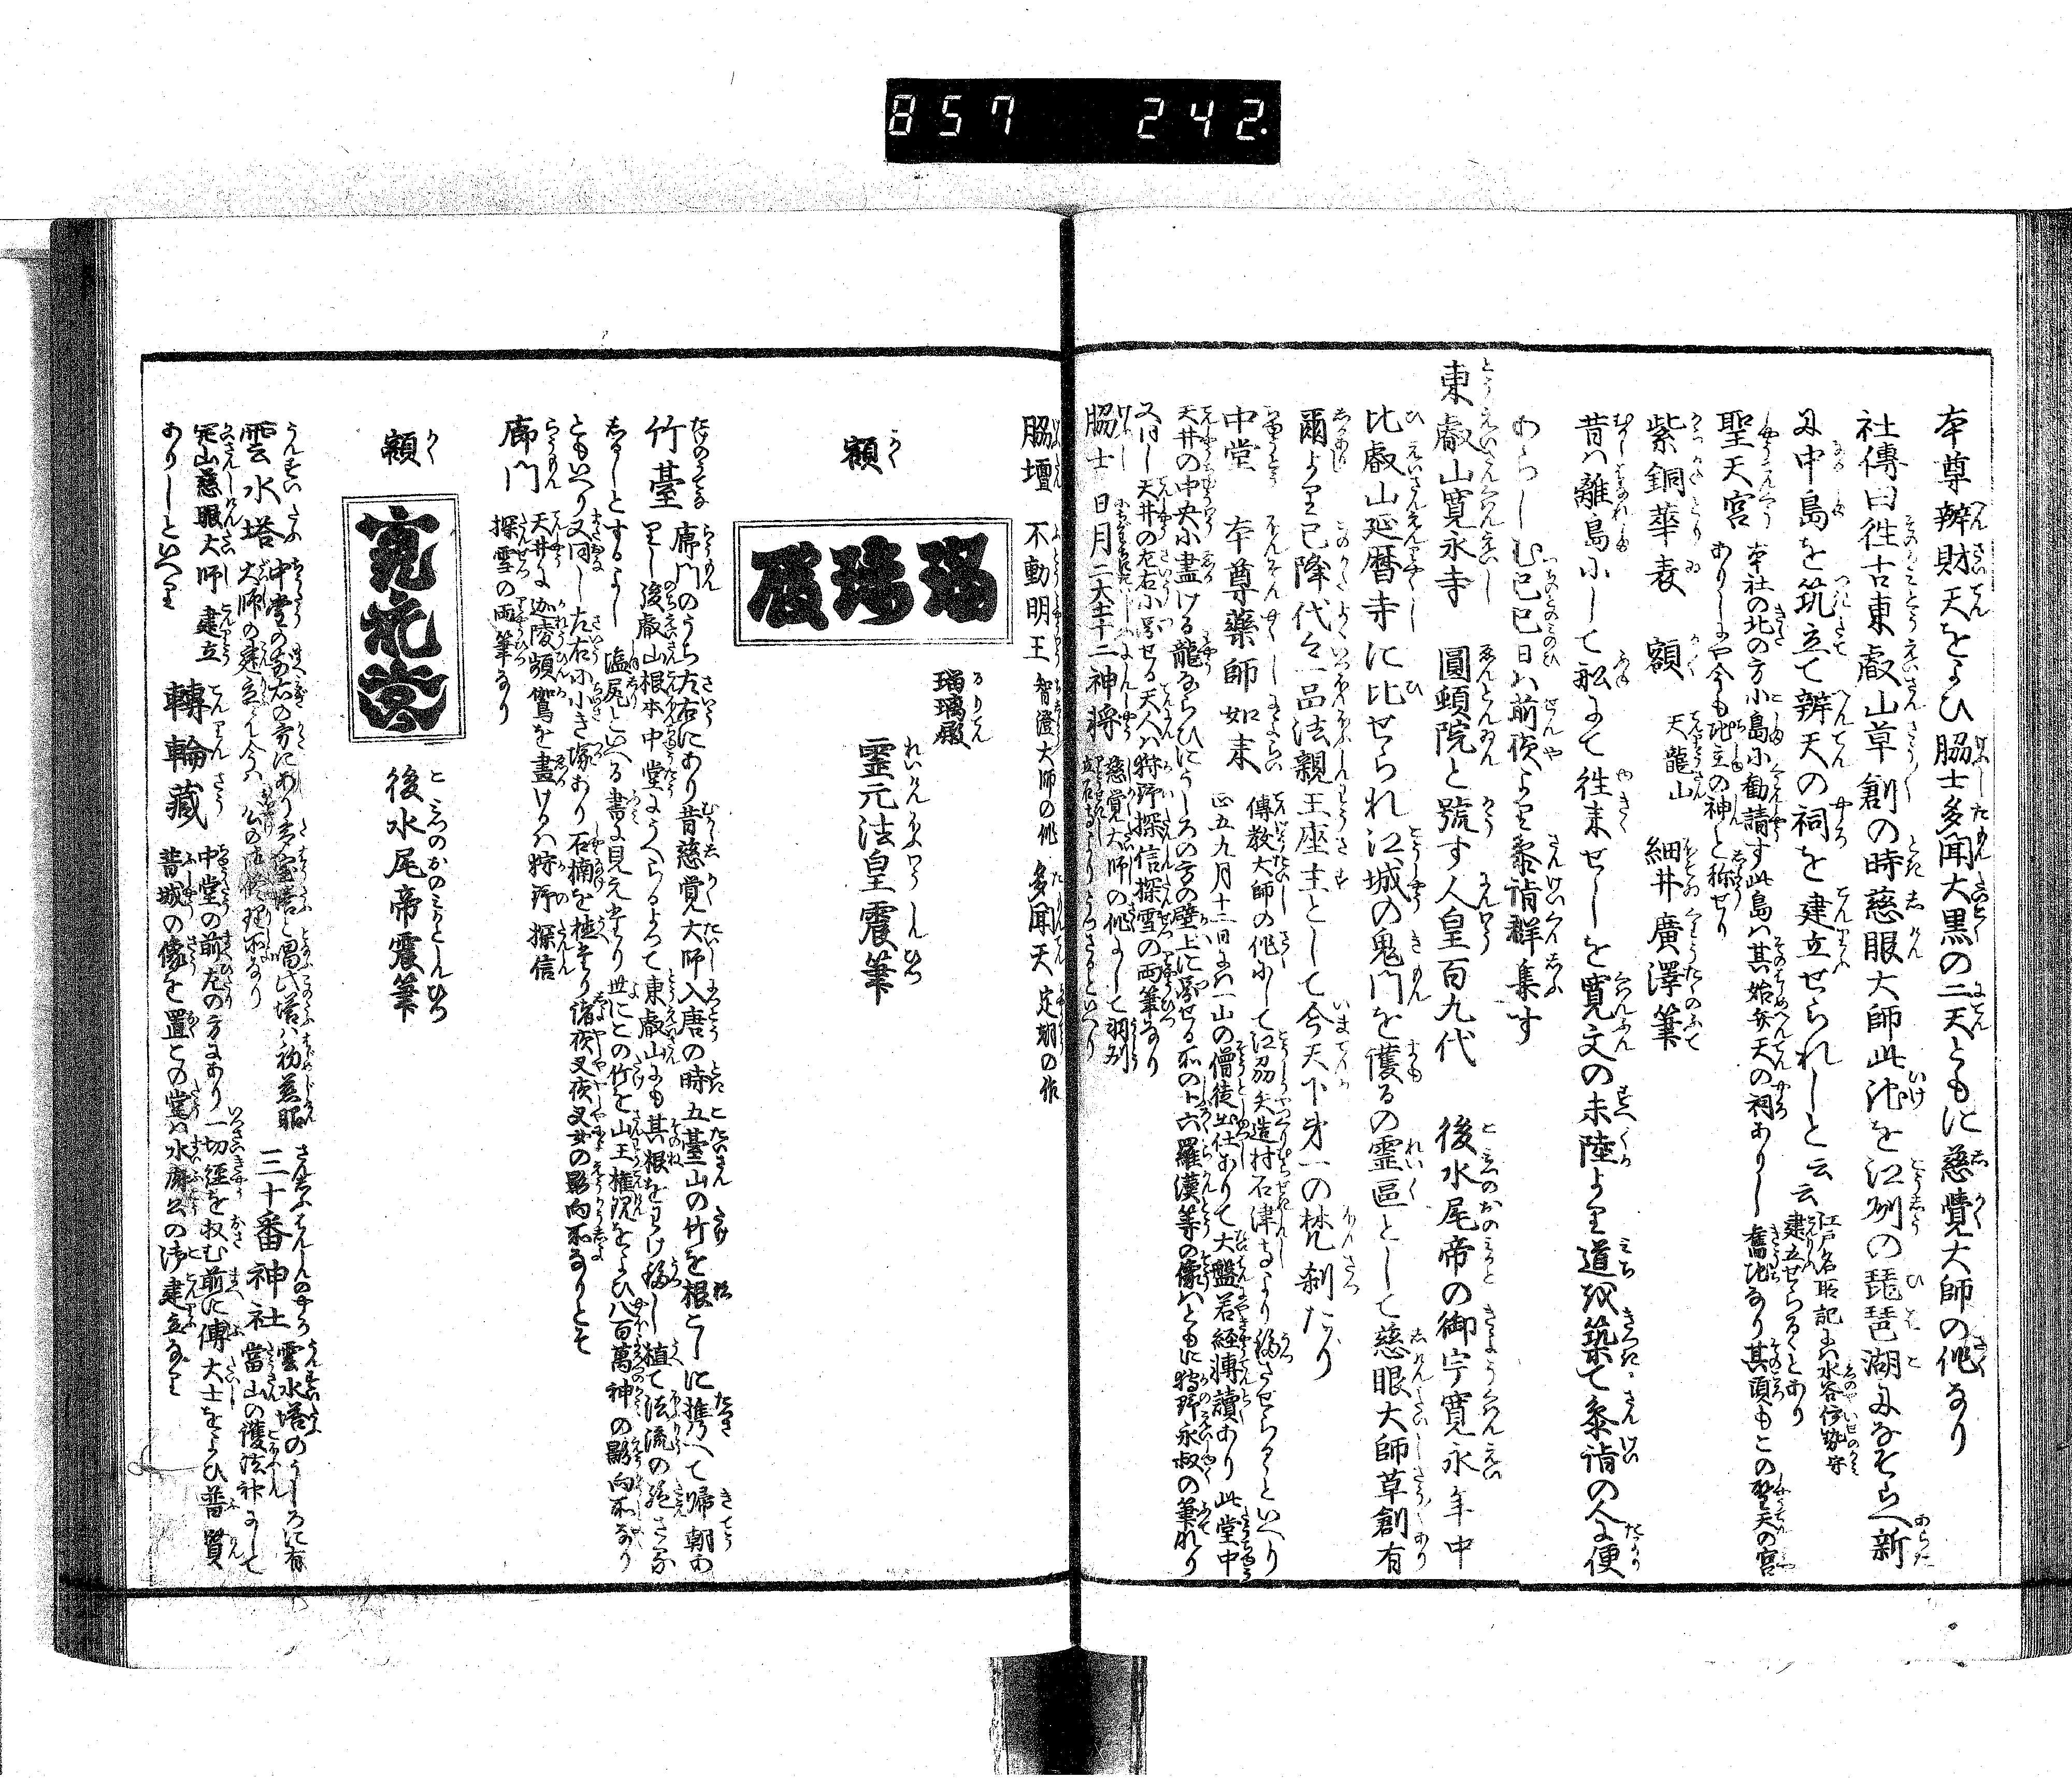 857 242.
本尊辨財天をよひ脇士多聞大黒の二天ともに慈覺大師の作なり
社傳曰徃古東叡山草創の時慈眼大師此池を江州の琵琶湖になそらへ新
に中島を筑立て辨天の祠を建立せられしと云云
江戸名所記には水谷伊勢守
建立せらるゝとあり
聖天宮
本社の北の方小島に勸請す此島は其始弁天の祠ありし舊地なり其頃もこの聖天の宮
ありしにや今も地主の神と称せり
紫銅華表 額 天龍山 細井廣澤筆
昔は離島にして舩にて徃来せしを寛文の末陸より道を築て参詣の人に便
あらしむ己巳日は前夜より参詣群集す
東叡山寛永寺 圓頓院と號す人皇百九代 後水尾帝の御宇寛永年中
比叡山延暦寺に比せられ江城の鬼門を護るの霊區として慈眼大師草創有
爾より已降代々一品法親王座主として今天下第一の梵刹たり
中堂 本尊藥師如来
傳教大師の作にして江州矢造村石津寺より移させらるゝといへり
正五九月十二日には一山の僧徒出仕ありて大盤若経轉讀あり此堂中
天井の中央に畫ける龍ならひにうしろの方の壁上に図せる所の十六羅漢等の像はともに狩野永叔の筆なり
又同し天井の左右に図せる天人は狩野探信探雪の両筆なり
脇士 日月二大士十二神将
慈覺大師の作にして羽州
立石寺よりうつさるといへり
脇壇 不動明王 智澄大師の作 多聞天 定朝の作
額
瑠璃殿
瑠璃殿
霊元法皇震筆
竹臺
廊門のうち左右にあり昔慈覚大師入唐の時五臺山の竹を根こしに携へて帰朝あ
りし後叡山根本中堂にうへらるよつて東叡山にも其根をわけ移し植て法流の絶さる
しるしとするよし 塩尻といへる書に見えたり世にこの竹を山王権現をよひ八百萬神の影向所なり
ともいへり又同し左右に小き塚あり石楠を植たり諸夜叉夜叉女の影向所なりとそ
廊門
天井に迦陵頻伽鳥を畫けるは狩野探信
探雪の両筆なり
額
寛永寺
後水尾帝震筆
雲水塔
中堂の前右の方にあり多宝塔と唱ふ此塔は初慈眼
大師の建立
三十番神社
雲水塔のうしろに有
當山の護法神にして
慈眼大師建立
ありしといへり
轉輪藏
中堂の前左の方にあり一切経を収む前に傳大士をよひ普賢
普城の像を置この堂は水府公の御建立なり